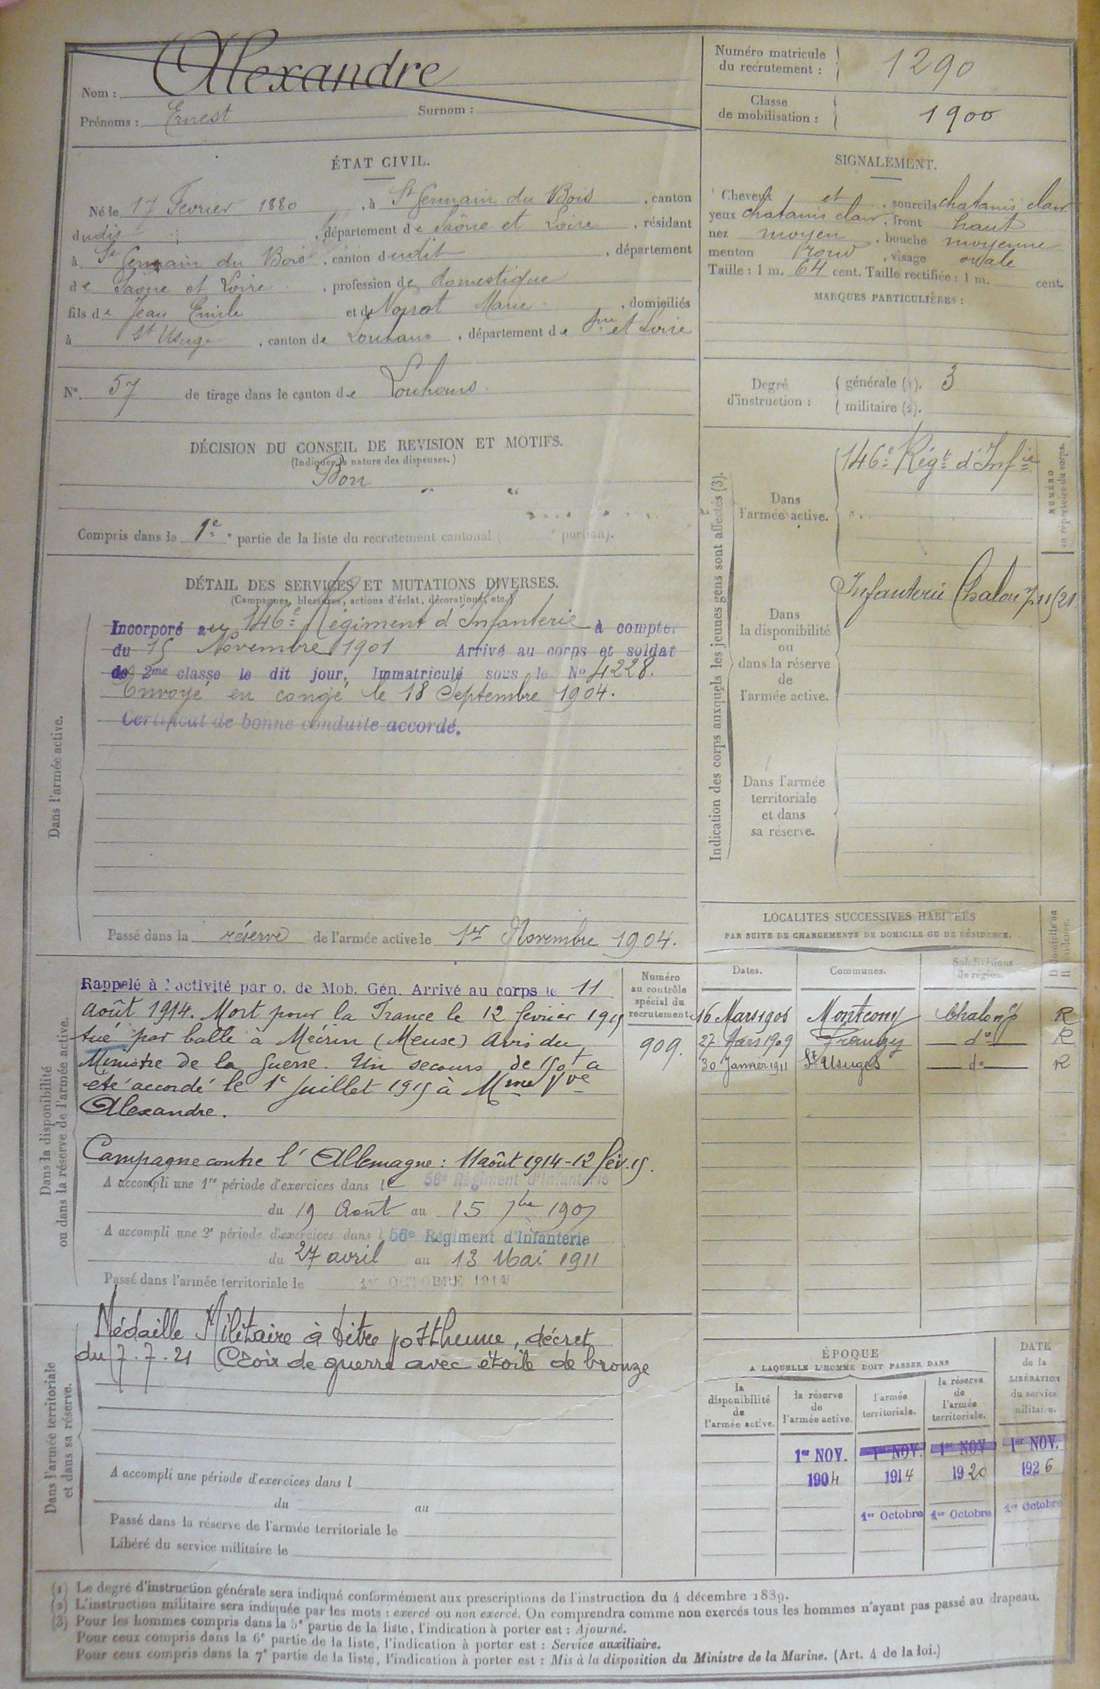 Nom : Alexandre
Prénoms : Ernest Surnom :
Numéro matricule
du recrutement : 1290
Classe
de mobilisation : 1900
ÉTAT CIVIL.
Né le 17 Fevrier 1880, à St Germain du Bois, canton
dudit, département de Saône et Loire, résidant
à St Germain du Bois, canton dudit, département
de Saône et Loire, profession de domestique
fils de Jean Emile et de Marie, domiciliés
à St Usuge, canton de Louhans, département de Sne et Loire
N° 57 de tirage dans le canton de Louhans.
SIGNALEMENT.
Cheveux et sourcils chatains clair
yeux chatains clair, front haut
nez moyen, bouche moyenne
menton rond, visage ovale
Taille : 1 m. 64 cent. Taille rectifiée : 1 m. cent.
MARQUES PARTICULIÈRES :
Degré
d'instruction :
générale (1). 3
militaire (2).
DÉCISION DU CONSEIL DE REVISION ET MOTIFS.
(Indiquer la nature des dispenses.)
Bon
Compris dans la 1e partie de la liste du recrutement cantonal ( portion).
DÉTAIL DES SERVICES ET MUTATIONS DIVERSES.
(Campagnes, blessures, actions d'éclat, décorations, etc.)
Dans l'armée active.
Incorporé au 146e Régiment d'Infanterie à compter
du 15 Novembre 1901 Arrivé au corps et soldat
de 2me classe le dit jour, Immatriculé sous le No 4228.
Envoyé en congé le 18 Septembre 1904.
Certificat de bonne conduite accordé.
Passé dans la réserve de l'armée active le 1er Novembre 1904.
Indication des corps auxquels les jeunes gens sont affectés (3).
NUMÉRO
au répertoire du corps.
Dans
l'armée active.
146e Régt d'Infie
Dans
la disponibilité
ou
dans la réserve
de
l'armée active.
Infanterie Chalon
Dans l'armée
territoriale
et dans
sa réserve.
Dans la disponibilité
ou dans la réserve de l'armée active.
Rappelé à l'activité par o. de Mob. Gén. Arrivé au corps le 11
août 1914. Mort pour la France le 12 février 1915
tué par balle à Mécrin (Meuse) Avis du
Ministre de la Guerre. Un secours de 150f a
été accordé le 1e juillet 1915 à Mme Vve
Alexandre.
Campagne contre l'Allemagne : 11 août 1914-12 fév. 15.
A accompli une 1re période d'exercices dans le 56e Régiment d'Infanterie
du 19 Aout au 15 7bre 1907
A accompli une 2e période d'exercices dans l 56e Régiment d'Infanterie
du 27 avril au 13 Mai 1911
Passé dans l'armée territoriale le 1er OCTOBRE 1914
Numéro
au contrôle
spécial du
recrutement.
909.
LOCALITES SUCCESSIVES HABITÉES
PAR SUITE DE CHANGEMENTS DE DOMICILE OU DE RÉSIDENCE.
Dates. Communes. Subdivisions
de région.
16 Mars 1906 Montcony Chalon R
27 Mars 1909 do R
30 Janvier 1911 St Usuge do R
Dans l'armée territoriale
et dans sa réserve.
Médaille Militaire à titre posthume, décret
du 7.7.21 Croix de guerre avec étoile de bronze
A accompli une période d'exercices dans l
du au
Passé dans la réserve de l'armée territoriale le
Libéré du service militaire le
ÉPOQUE
A LAQUELLE L'HOMME DOIT PASSER DANS
DATE
de la
LIBÉRATION
du service
militaire.
la
disponibilité
de
l'armée active.
la réserve
de
l'armée active.
l'armée
territoriale.
la réserve
de
l'armée
territoriale.
1er NOV. 1er NOV. 1er NOV. 1er NOV.
1904 1914 1920 1926
1er Octobre 1er Octobre 1er Octobre
(1) Le degré d'instruction générale sera indiqué conformément aux prescriptions de l'instruction du 4 décembre 1889.
(2) L'instruction militaire sera indiquée par les mots : exercé ou non exercé. On comprendra comme non exercés tous les hommes n'ayant pas passé au drapeau.
(3) Pour les hommes compris dans la 5e partie de la liste, l'indication à porter est : Ajourné.
Pour ceux compris dans la 6e partie de la liste, l'indication à porter est : Service auxiliaire.
Pour ceux compris dans la 7e partie de la liste, l'indication à porter est : Mis à la disposition du Ministre de la Marine. (Art. 4 de la loi.)